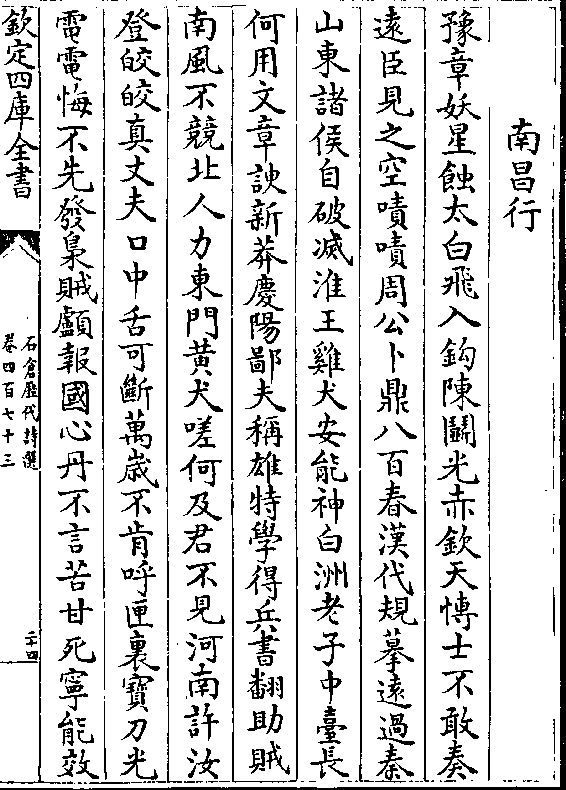 南昌行
豫章妖星蝕太白飛入鈎陳鬭光赤欽天愽士不敢奏
遠臣見之空嘖嘖周公卜鼎八百春漢代規摹遠過秦
山東諸侯自破滅淮王雞犬安能神白洲老子中臺長
何用文章諛新莽慶陽鄙夫稱雄特學得兵書翻助賊
南風不競北人力東門黄犬嗟何及君不見河南許汝
登皎皎真丈夫口中舌可斷萬歳不肯呼匣裏寶刀光
電電悔不先發梟賊顱報國心丹不言苦甘死寧能效
欽定四庫全書
石倉歷代詩選
卷四百七十三
二十四